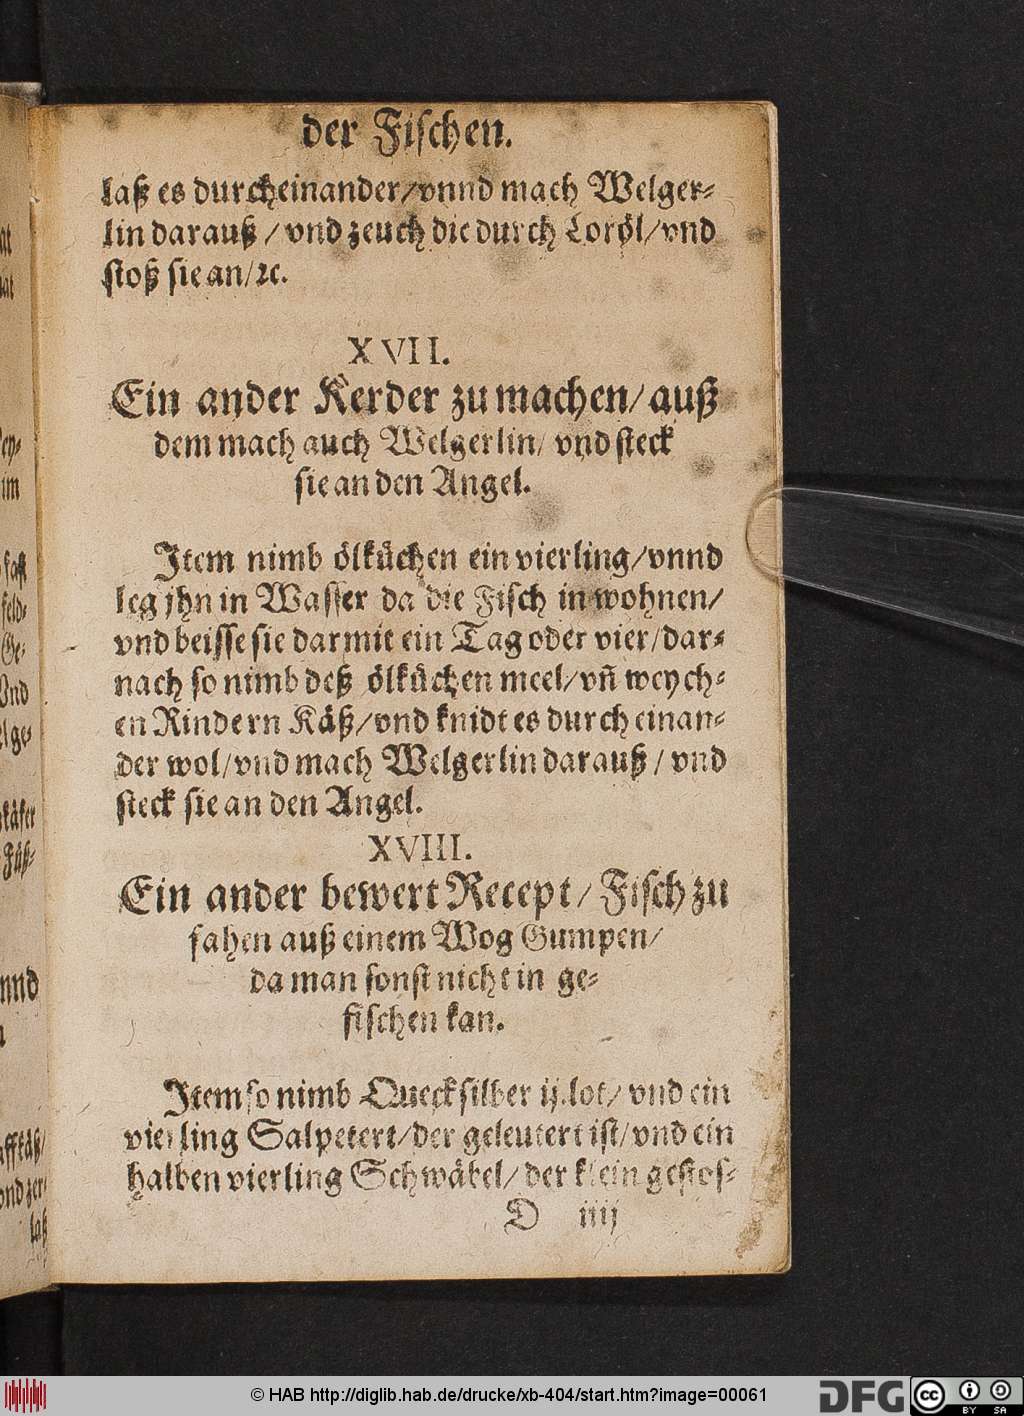 der Fiſchen.
laß es durcheinander/vnnd mach Welger⸗
lin darauß / vnd zeuch die durch Loröl/vnd
ſtoß ſie an/ꝛc.
XVII.
Ein ander Kerder zu machen/auß
dem mach auch Welgerlin/ vnd ſteck
ſie an den Angel.
Item nimb ölküchen ein vierling/vnnd
leg jhn in Waſſer da die Fiſch in wohnen/
vnd beiſſe ſie darmit ein Tag oder vier/dar⸗
nach ſo nimb deß ölküchen meel/vñ weych⸗
en Rindern Käß/vnd knidt es durch einan⸗
der wol/vnd mach Welgerlin darauß / vnd
ſteck ſie an den Angel.
XVIII.
Ein ander bewert Recept/ Fiſch zu
fahen auß einem Wog Gumpen/
da man ſonſt nicht in ge⸗
fiſchen kan.
Item ſo nimb Queckſilber ij.lot/ vnd ein
vierling Salpetert/der geleutert iſt/vnd ein
halben vierling Schwäbel/ der klein geſtoſ⸗
D iiij
ey⸗
im
feld⸗
Ge⸗
Vnd
nnd
laß
© HAB http://diglib.hab.de/drucke/xb-404/start.htm?image=00061
DFG
cc
BY SA